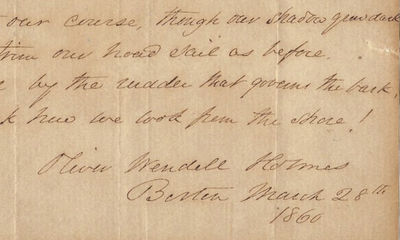 our course, though our shadow grow dark
trim our broad sail as before,
by the rudder that governs the bark,
how we look from the shore!
Oliver Wendell Holmes
Boston March 28th
1860